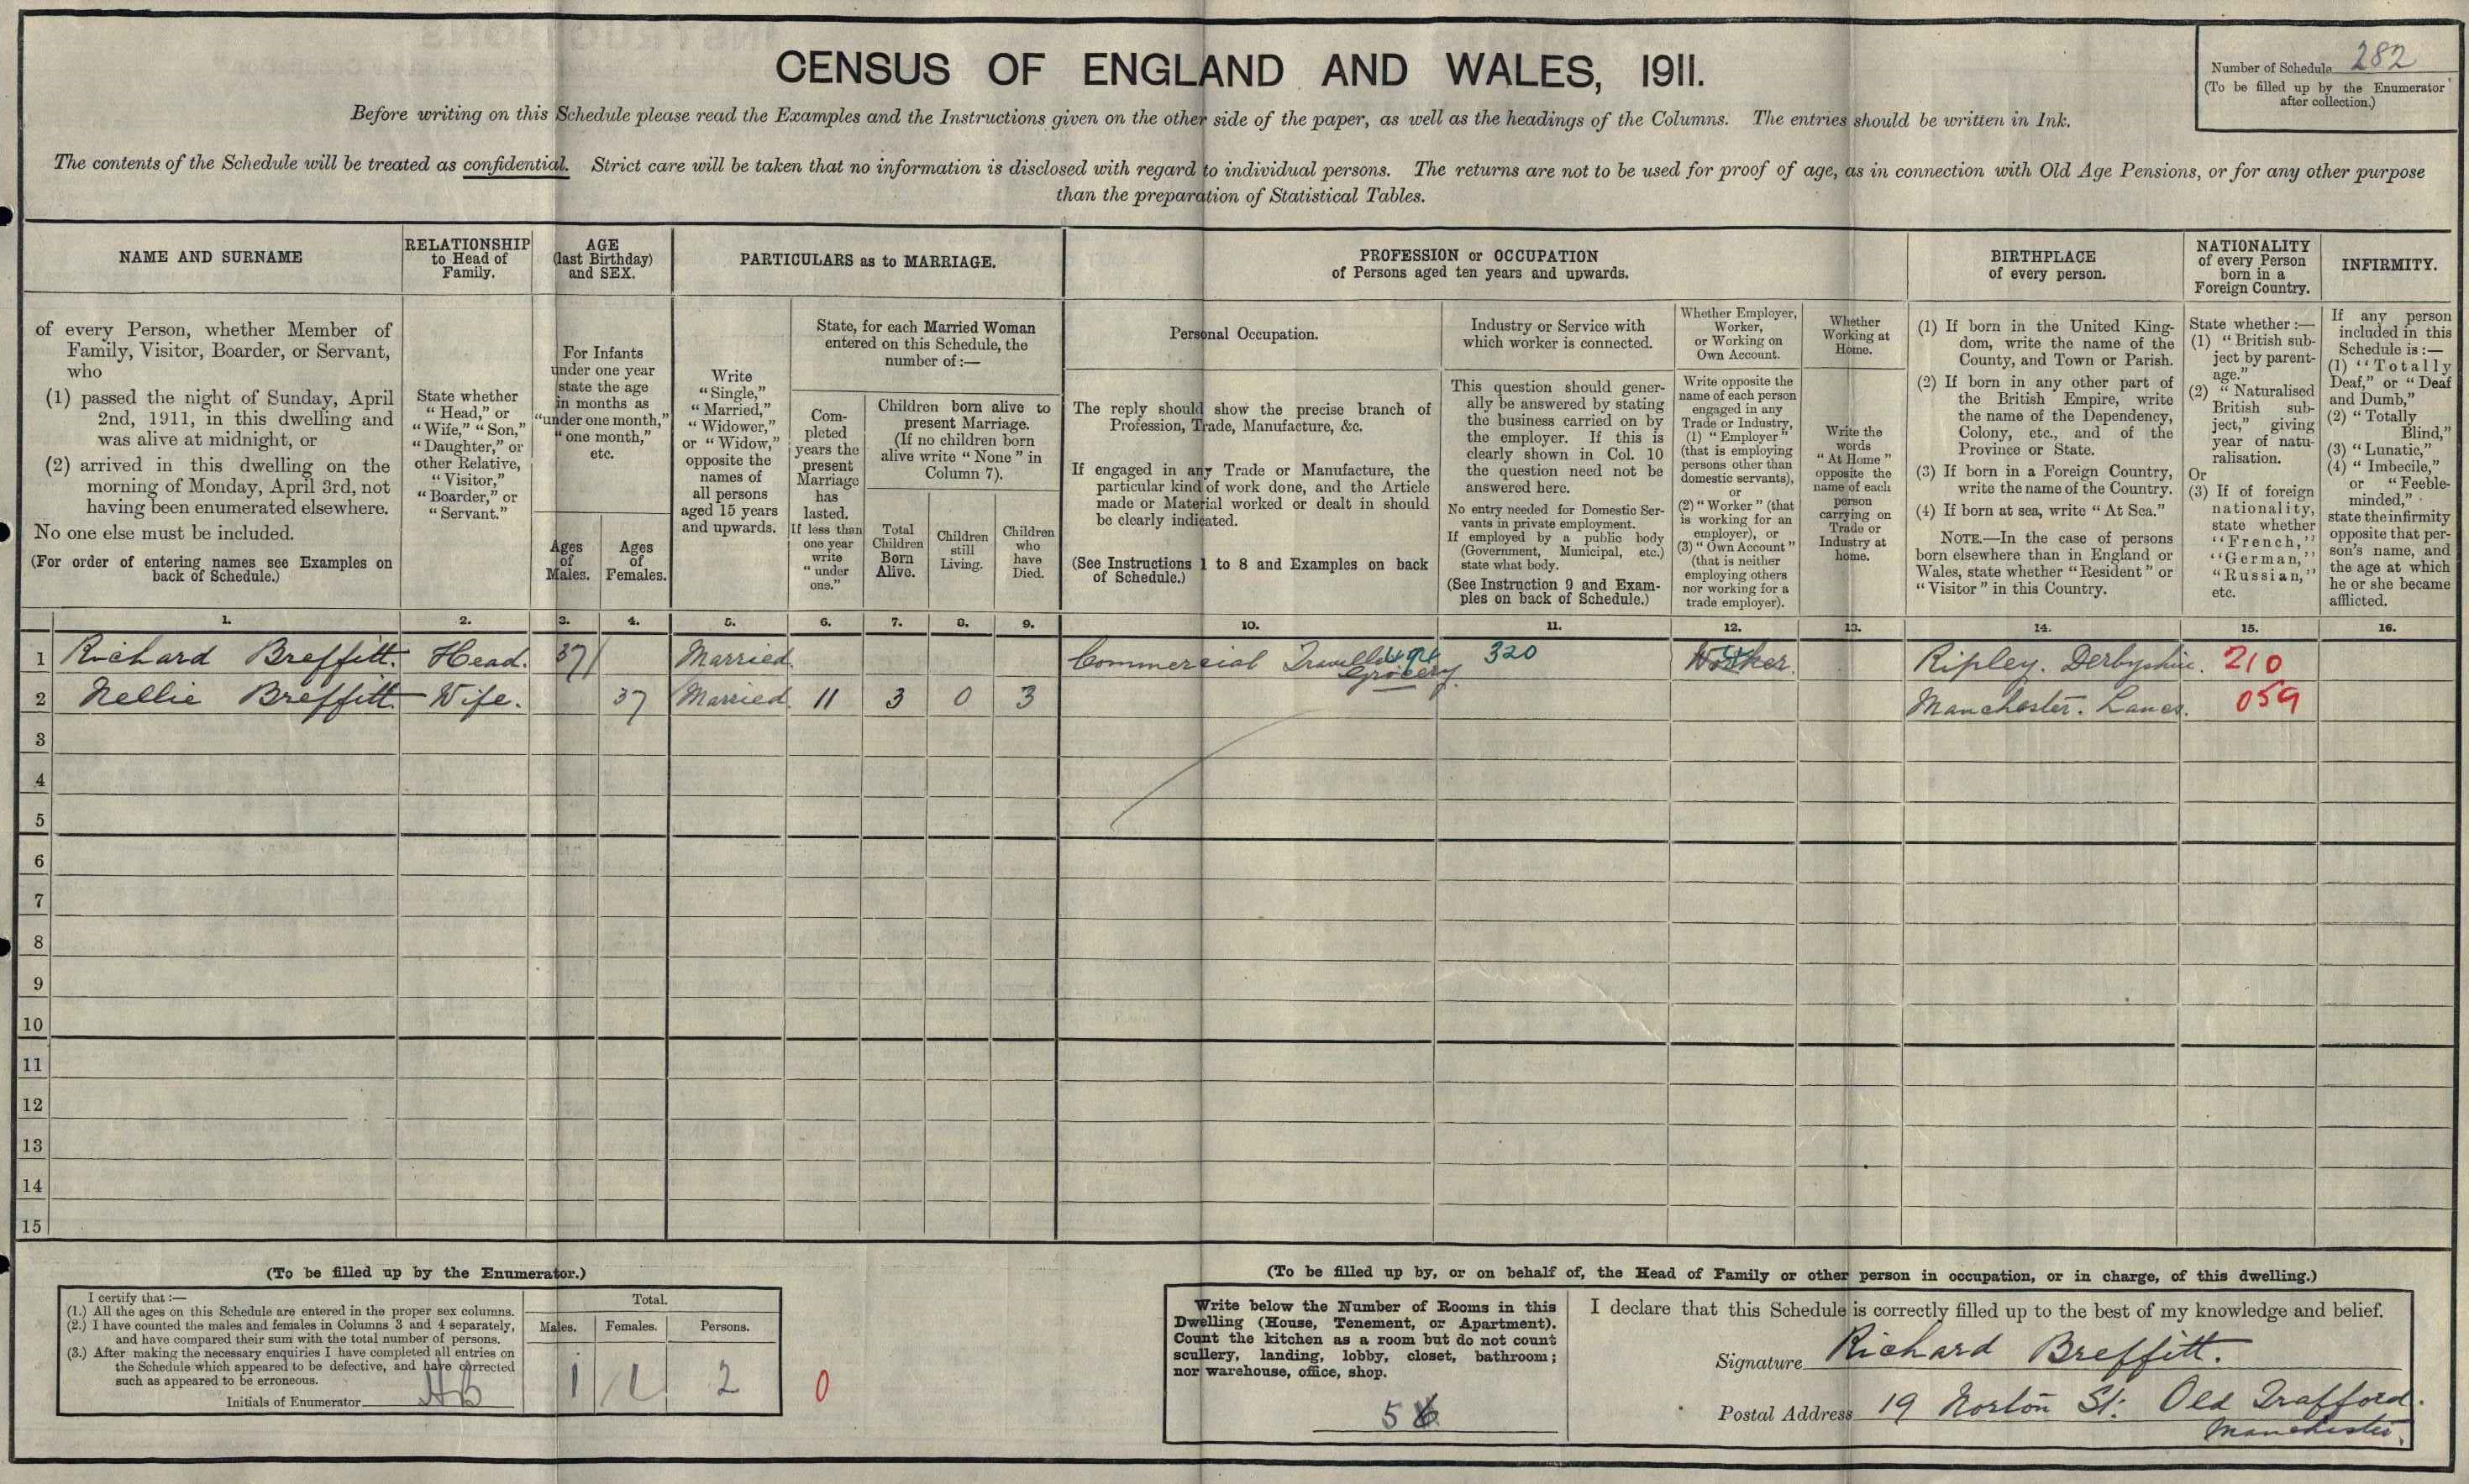 CENSUS OF ENGLAND AND WALES, 1911.
Number of Schedule 282
(To be filled up by the Enumerator
after collection.)
Before writing on this Schedule please read the Examples and the Instructions given on the other side of the paper, as well as the headings of the Columns. The entries should be written in Ink.
The contents of the Schedule will be treated as confidential. Strict care will be taken that no information is disclosed with regard to individual persons. The returns are not to be used for proof of age, as in connection with Old Age Pensions, or for any other purpose
than the preparation of Statistical Tables.
NAME AND SURNAME
of every Person, whether Member of
Family, Visitor, Boarder, or Servant,
who
(1) passed the night of Sunday, April
2nd, 1911, in this dwelling and
was alive at midnight, or
(2) arrived in this dwelling on the
morning of Monday, April 3rd, not
having been enumerated elsewhere.
No one else must be included.
(For order of entering names see Examples on
back of Schedule.)
RELATIONSHIP
to Head of
Family.
State whether
"Head," or
"Wife," "Son,"
"Daughter," or
other Relative,
"Visitor,"
"Boarder," or
"Servant."
AGE
(last Birthday)
and SEX.
For Infants
under one year
state the age
in months as
"under one month,"
"one month,"
etc.
Ages
of
Males.
Ages
of
Females.
PARTICULARS as to MARRIAGE.
Write
"Single,"
"Married,"
"Widower,"
or "Widow,"
opposite the
names of
all persons
aged 15 years
and upwards.
State, for each Married Woman
entered on this Schedule, the
number of:—
Com-
pleted
years the
present
Marriage
has
lasted.
If less than
one year
write
"under
one."
Children born alive to
present Marriage.
(If no children born
alive write "None" in
Column 7).
Total
Children
Born
Alive.
Children
still
Living.
Children
who
have
Died.
PROFESSION or OCCUPATION
of Persons aged ten years and upwards.
Personal Occupation.
The reply should show the precise branch of
Profession, Trade, Manufacture, &c.
If engaged in any Trade or Manufacture, the
particular kind of work done, and the Article
made or Material worked or dealt in should
be clearly indicated.
(See Instructions 1 to 8 and Examples on back
of Schedule.)
Industry or Service with
which worker is connected.
This question should gener-
ally be answered by stating
the business carried on by
the employer. If this is
clearly shown in Col. 10
the question need not be
answered here.
No entry needed for Domestic Ser-
vants in private employment.
If employed by a public body
(Government, Municipal, etc.)
state what body.
(See Instruction 9 and Exam-
ples on back of Schedule.)
Whether Employer,
Worker,
or Working on
Own Account.
Write opposite the
name of each person
engaged in any
Trade or Industry,
(1) "Employer"
(that is employing
persons other than
domestic servants),
or
(2) "Worker" (that
is working for an
employer), or
(3) "Own Account"
(that is neither
employing others
nor working for a
trade employer).
Whether
Working at
Home.
Write the
words
"At Home"
opposite the
name of each
person
carrying on
Trade or
Industry at
home.
BIRTHPLACE
of every person.
(1) If born in the United King-
dom, write the name of the
County, and Town or Parish.
(2) If born in any other part of
the British Empire, write
the name of the Dependency,
Colony, etc., and of the
Province or State.
(3) If born in a Foreign Country,
write the name of the Country.
(4) If born at sea, write "At Sea."
NOTE.—In the case of persons
born elsewhere than in England or
Wales, state whether "Resident" or
"Visitor" in this Country.
NATIONALITY
of every Person
born in a
Foreign Country.
State whether:—
(1) "British sub-
ject by parent-
age."
(2) "Naturalised
British sub-
ject," giving
year of natu-
ralisation.
Or
(3) If of foreign
nationality,
state whether
"French,"
"German,"
"Russian,"
etc.
INFIRMITY.
If any person
included in this
Schedule is:—
(1) "Totally
Deaf," or "Deaf
and Dumb,"
(2) "Totally
Blind,"
(3) "Lunatic,"
(4) "Imbecile,"
or "Feeble-
minded,"
state the infirmity
opposite that per-
son's name, and
the age at which
he or she became
afflicted.
1. 2. 3. 4. 5. 6. 7. 8. 9. 10. 11. 12. 13. 14. 15. 16.
1 Richard Breffitt. Head. 37 Married Commercial Traveller 320 Worker. Ripley. Derbyshire. 210
Grocery.
2 Nellie Breffitt Wife. 37 Married. 11 3 0 3 Manchester. Lancs. 059
3
4
5
6
7
8
9
10
11
12
13
14
15
(To be filled up by the Enumerator.)
I certify that:—
(1.) All the ages on this Schedule are entered in the proper sex columns.
(2.) I have counted the males and females in Columns 3 and 4 separately,
and have compared their sum with the total number of persons.
(3.) After making the necessary enquiries I have completed all entries on
the Schedule which appeared to be defective, and have corrected
such as appeared to be erroneous.
Initials of Enumerator HB
Total.
Males. Females. Persons.
1 1 2
0
(To be filled up by, or on behalf of, the Head of Family or other person in occupation, or in charge, of this dwelling.)
Write below the Number of Rooms in this
Dwelling (House, Tenement, or Apartment).
Count the kitchen as a room but do not count
scullery, landing, lobby, closet, bathroom;
nor warehouse, office, shop.
5
I declare that this Schedule is correctly filled up to the best of my knowledge and belief.
Signature Richard Breffitt.
Postal Address 19 Norton St: Old Trafford.
Manchester.